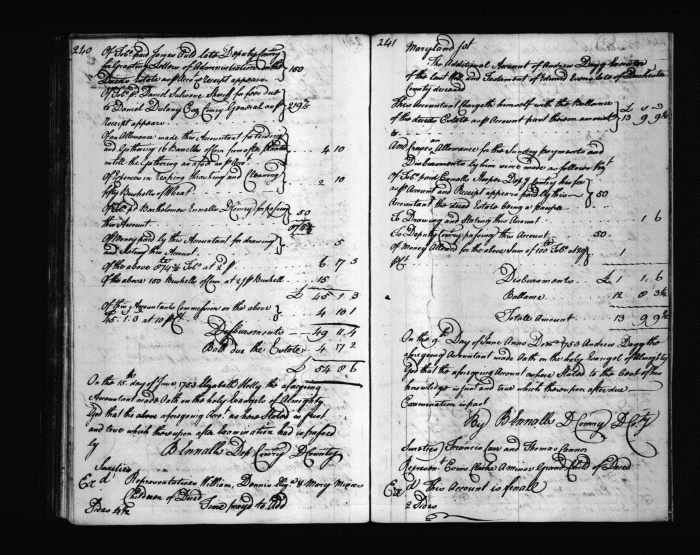 240
Of Tob.o paid James Auld late Deputy Comry
for Granting Letters of Administration on the
Deced.s Estate as p Acco & receipt appears
150
Of Tob.o p.d Daniel Sulivane Sheriff for fees due
to Daniel Dulany Esq.r Comry General as p
Receipt appears
219½
Of an Allowance made this Accountant for tending
and Gathering 16 Barrells of Corn from
untill the Gathering as afsd as p Acct
4 10
Of Expences in Reaping thrashing and Cleaning
fifty Bushells of Wheat
2 10
Of Tob.o p.d Bartholomew Ennalls D Comry for passing
this Account
50
Of Money paid by this Accountant for drawing
and stating this Account
5
Of the above 874½ Tob.o at 2 p
6 17 3
Of the above 150 Bushells of Corn at 2 p Bushell
15
£ 45 1 3
Of this Accountants Commission on the above
45 : 1 : 3 at 10 p C.t
4 10 1
Disbursements
49 11 4
Ball due the Estate
4 17 2
£ 54 8 6
On the 15.th day of June 1753 Elizabeth Kelly the aforegoing
Accountant made Oath on the holy Evangels of Almighty
God that the above aforegoing Acco.t as here Stated is just
and true which thereupon after Examination had is passed
by
B Ennalls Dep Comry D County
Sureties
Ex d
Representatives William, Dennis and Mary Minors
Children of Deced
Time prayed to Add
Sides 4½
241
Maryland sst
The Additional Amount of Andrew Dagg
of the last Will and Testament of Edward Evans late of Dorchester
County deceased
This Accountant Chargeth himself with the Ballance
of the deceds Estate as p Account past thereon amount
to
£ s d
13 9 9½
And Craves Allowance for the Sundry payments and
Disbursements by him since made as follows Viz.t
Of Tob.o paid Ennalls Keeper D County his fee
as p Account and Receipt appears paid by this
Accountant the deced Estate being
50
To Drawing and Stating this Account
1 6
To Deputy Comry passing this Account
50
Of Money Allowed for the above Sum of 100 Tob.o at
p C.t
1
Disbursements
£ 1 1 6
Ballance
12 8 3½
Totale Amount
13 9 9½
On the 9.th Day of June Anno Dom 1753 Andrew Dagg the
aforegoing Accountant made Oath on the holy Evangel of Almighty
God that the aforegoing Account as here Stated to the best of his
knowledge is just and true which thereupon after due
Examination is past
By B Ennalls D Comry D Co.ty
Sureties Francis Caw and Thomas Connor
Represen: Evans Clarke A minor Grand Child of Deced
Ex d This Account is finale
2 Sides